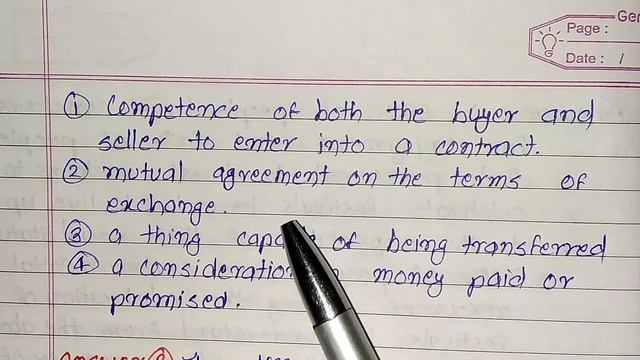 Ger
Page :
Date : /
① Competence of both the buyer and
seller to enter into a contract.
② mutual agreement on the terms of
exchange.
③ a thing of being transferred
④ a consideration money paid or
promised.